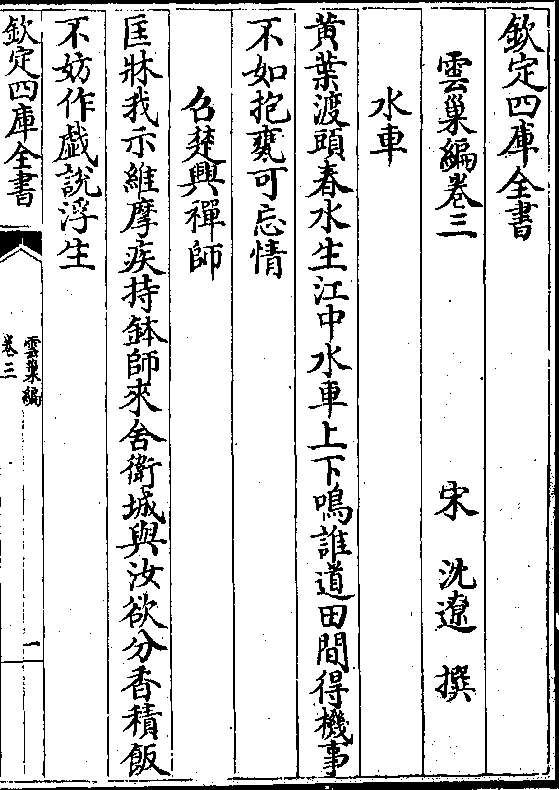 欽定四庫全書
雲巢編卷三
宋 沈遼 撰
水車
黄葉渡頭春水生江中水車上下鳴誰道田間得機事
不如抱甕可忘情
召楚興禪師
匡牀我示維摩疾持鉢師來舍衛城與汝欲分香積飯
不妨作戲說浮生
欽定四庫全書
雲巢編
卷三
一